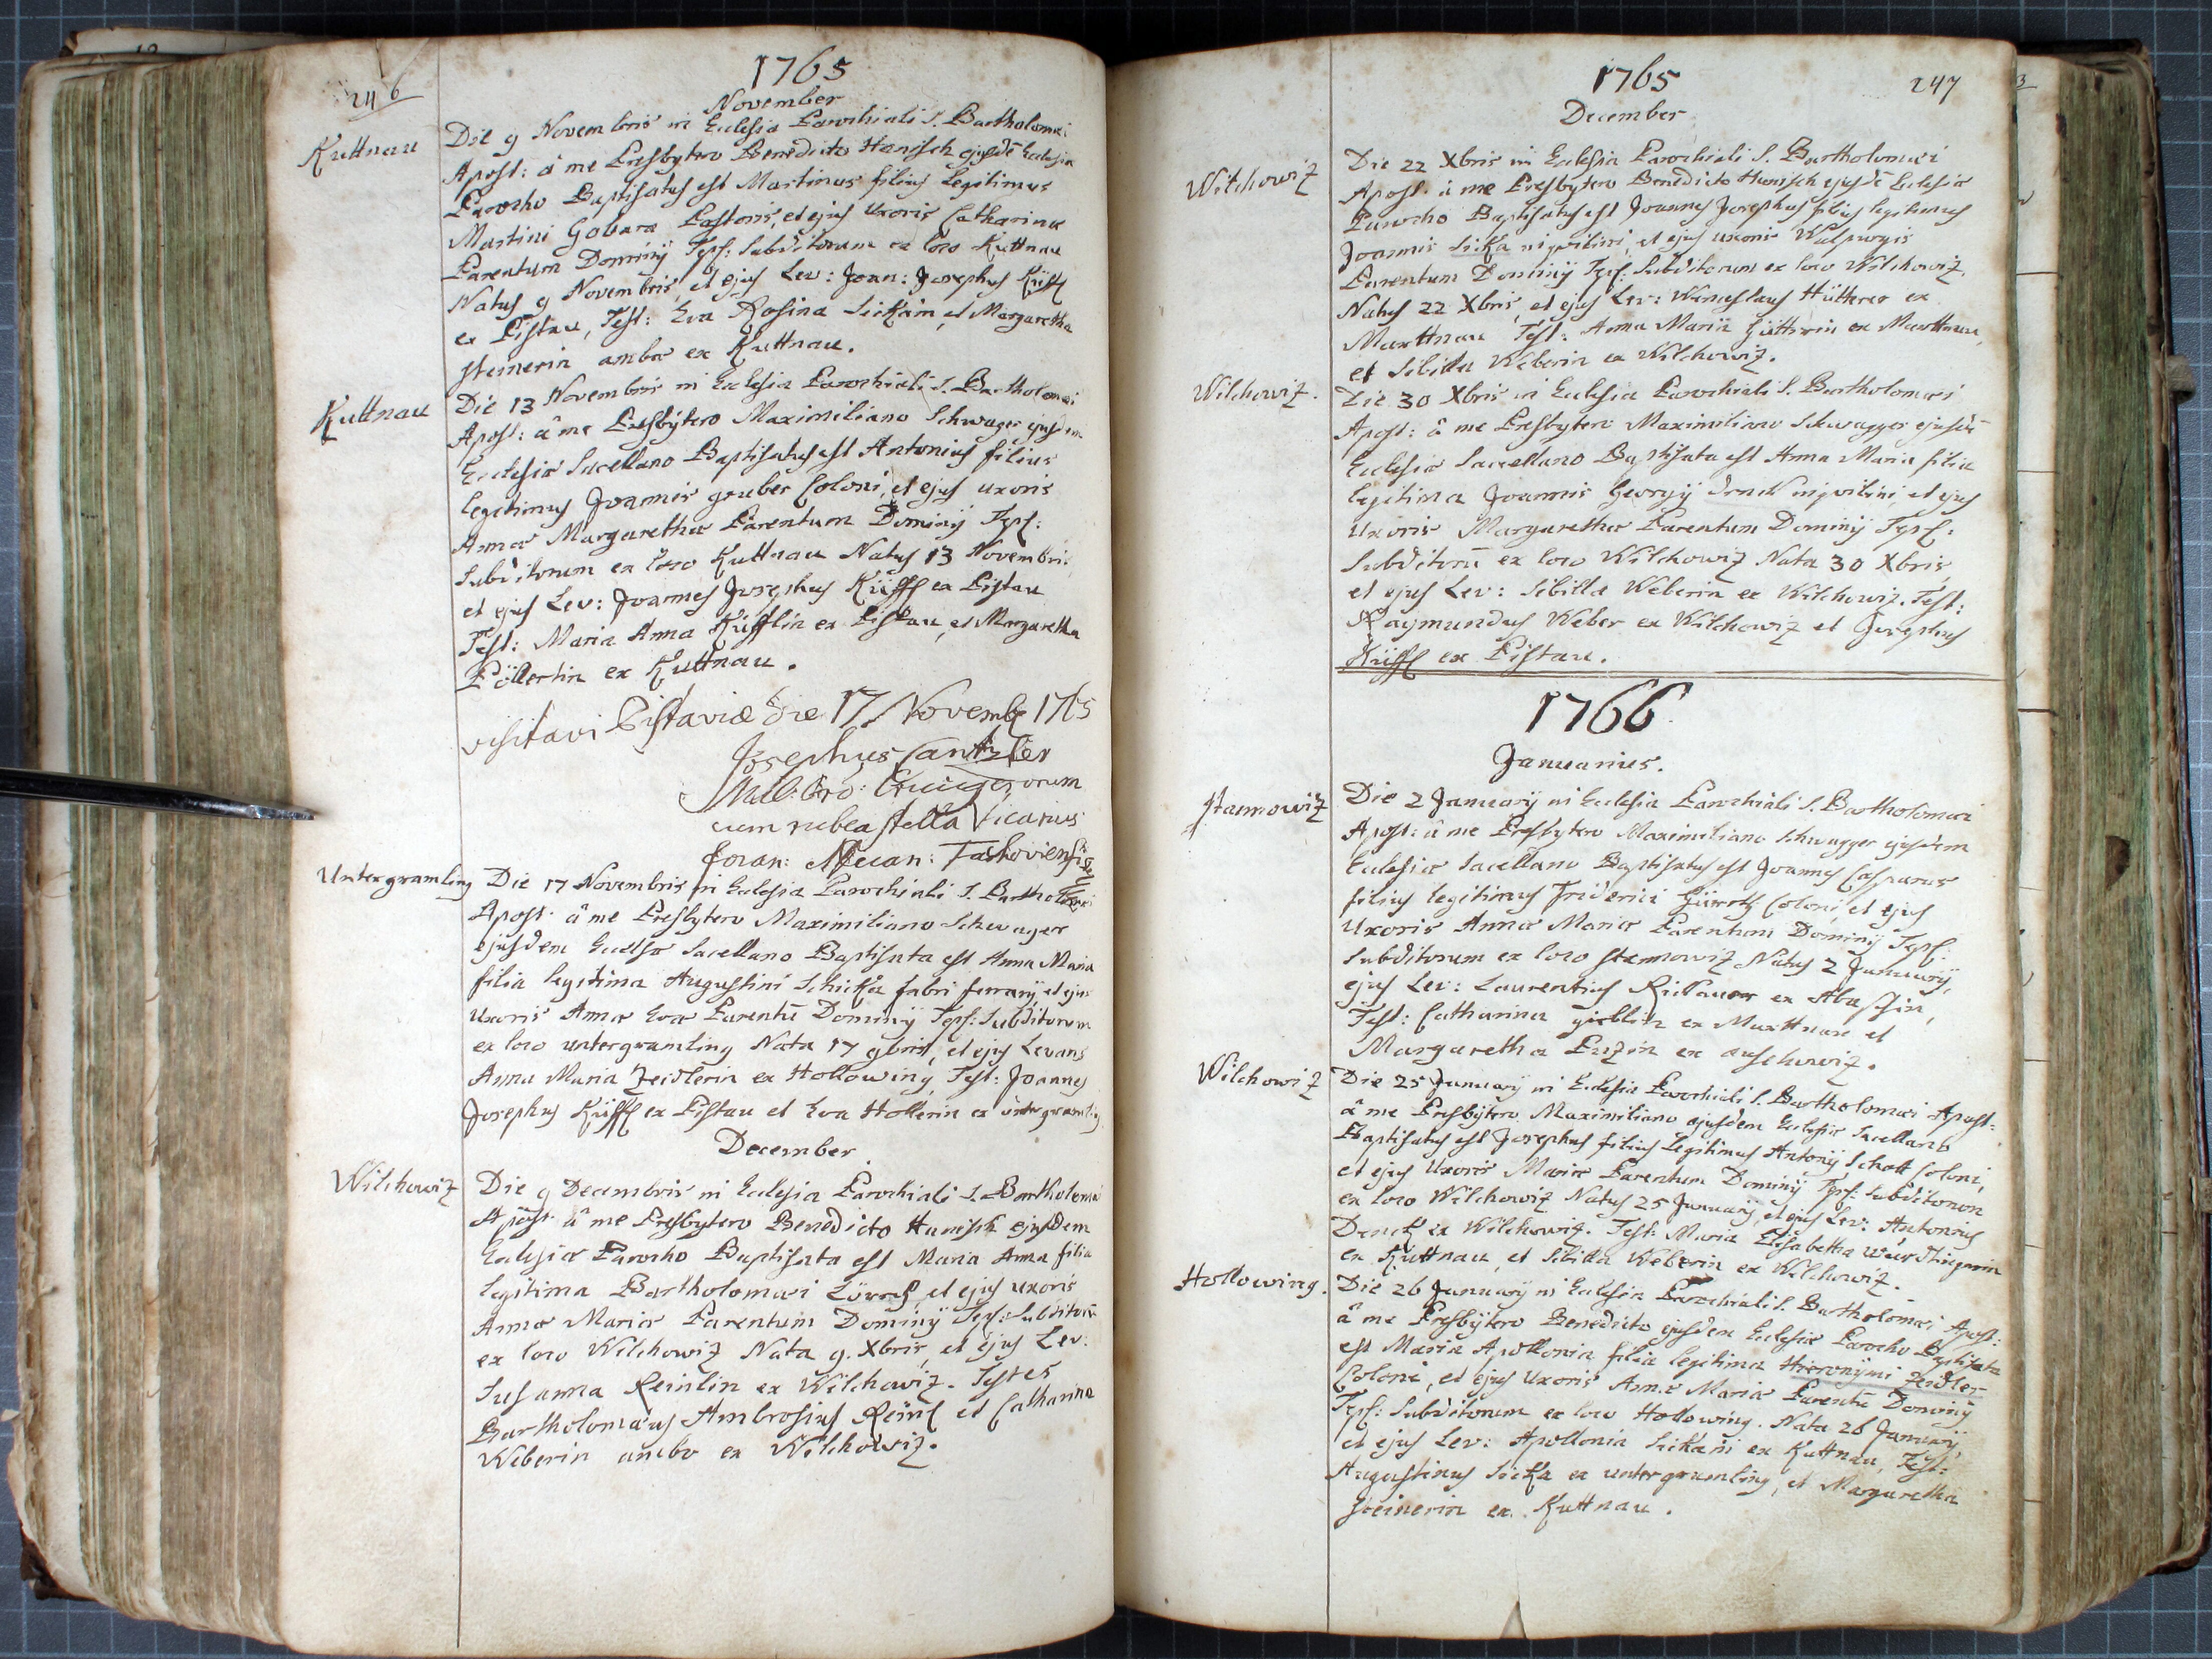 246
1765
November
Kuttnau
Die 9 Novembris in Ecclesia Parochiali S. Bartholomæi
Apost: â me Presbytero Benedicto Hanisch ejusdē Ecclesiæ
Parocho Baptisatus est Martinus filius Legitimus
Martini Gobara Pastoris, et ejus Uxoris Catharinæ
Parentum Dominij Tepl: Subditorum ex loco Kuttnau
Natus 9 Novembris, et ejus Lev: Joan: Josephus Küffl
ex Pistau, Test: Eva Rosina Sickain, et Margaretha
Steinerin ambæ ex Kuttnau.
Kuttnau
Die 13 Novembris in Ecclesia Parochiali S. Bartholomæi
Apost: â me Presbÿtero Maximiliano Schwager ejusdem
Ecclesiæ Sacellano Baptisatus est Antonius filius
legitimus Joannis gruber Coloni, et ejus uxoris
Annæ Margarethæ Parentum Dominij Tepl:
Subditorum ex loco Kuttnau Natus 13 Novembris,
et ejus Lev: Joannes Josephus Küffl ex Pistau
Test: Maria Anna Küfflin ex Pistau, et Margaretha
Pöllertin ex Kuttnau.
visitavi Pistaviæ die 17 Novemb 1765
Josephus Cantzler
cum rubea stella Vicarius
Foran: Decan: Tashoviensis
Untergramling
Die 17 Novembris in Ecclesia Parochiali S. Bartholomæi
Apost: â me Presbytero Maximiliano Schwager
ejusdem Ecclesæ Sacellano Baptisata est Anna Maria
filia legitima Augustini Schicka fabri ferrarij, et ejus
Uxoris Annæ Evæ Parentū Dominij Tepl: Subditorum
ex loco untergramling Nata 17 9bris, et ejus Levans
Anna Maria Zeidlerin ex Hollowing, Test: Joannes
Josephus Küffl ex Pistau et Eva Hollerin ex untergramling.
December.
Wilchowiz
Die 9 Decembris in Ecclesia Parochiali S. Bartholomæi
Apost: â me Presbytero Benedicto Hanisch ejusdem
Ecclesiæ Parocho Baptisata est Maria Anna filia
legitima Bartholomæi et ejus uxoris
Annæ Mariæ Parentum Dominij Tepl: Subditorū
ex loco Wilchowiz Nata 9. Xbris, et ejus Lev:
Susanna Reinlin ex Wilchowiz. Testes
Bartholomæus Ambrosius Reinl et Catharina
Weberin ambo ex Wilchowiz.
1765
247
December
Wilchowiz
Die 22 Xbris in Ecclesia Parochiali S. Bartholomæi
Apost. â me Presbytero Benedicto Hanisch ejusdē Ecclesiæ
Parocho Baptisatus est Joannes Josephus filius legitimus
Joannis Sicka inquilini, et ejus uxoris Walpurgis
Parentum Dominij Tepl. Subditorum ex loco Wilchowiz.
Natus 22 Xbris, et ejus Lev: Wenceslaus Hütterer ex
Marttnau Test: Anna Maria Hüttrin ex Marttnau,
et Sibilla Weberin ex Wilchowiz.
Wilchowiz.
Die 30 Xbris in Ecclesia Parochiali S. Bartholomæi
Apost: â me Presbytero Maximiliano Schwagger ejusdē
Ecclesiæ Sacellano Baptisata est Anna Maria filia
legitima Joannis Georgij inquilini, et ejus
Uxoris Margarethæ Parentum Dominij Tepl:
Subditorū ex loco Wilchowiz Nata 30 Xbris,
et ejus Lev: Sibilla Weberin ex Wilchowiz. Test:
Raymundus Weber ex Wilchowiz et Josephus
Küffl ex Pistau.
1766
Januarius.
Stannowiz
Die 2 Januarij in Ecclesia Parochiali S. Bartholomæi
Apost: â me Presbytero Maximiliano Schwagger ejusdem
Ecclesiæ Sacellano Baptisatus est Joannes Casparus
filius legitimus Friderici Coloni, et ejus
Uxoris Annæ Mariæ Parentum Dominij Tepl.
Subditorum ex loco Stannowiz Natus 2 Januarij,
ejus Lev: Laurentius ex
Test: Catharina ex Marttnau et
Margaretha ex auschowiz.
Wilchowiz
Die 25 Januarij in Ecclesia Parochiali S. Bartholomæi Apost:
â me Presbytero Maximiliano ejusdem Ecclesiæ Sacellano
Baptisatus est Josephus filius Legitimus Antonij Schott Coloni,
et ejus Uxoris Mariæ Parentum Dominij Tepl: Subditorum
ex loco Wilchowiz Natus 25 Januarij, et ejus Lev: Antonius
Denck ex Wilchowiz. Test: Maria Elisabetha
ex Kuttnau, et Sibilla Weberin ex Wilchowiz.
Hollowing.
Die 26 Januarij in Ecclesia Parochiali S. Bartholomæi Apost:
â me Presbÿtero Benedicto ejusdem Ecclesiæ Parocho Baptisata
est Maria Apollonia filia legitima Hieronÿmi Zeidler
Coloni, et ejus Uxoris Annæ Mariæ Parentū Dominij
Tepl: Subditorum ex loco Hollowing. Nata 26 Januarij,
et ejus Lev: Apollonia Sickain ex Kuttnau, Test:
Augustinus Sicka ex untergramling, et Margaretha
Steinerin ex Kuttnau.